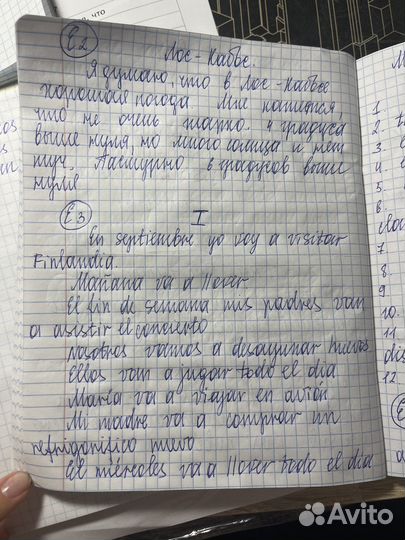 что
E2
Лос-Кабос.
Я думаю, что в Лос-Кабосе
хорошая погода Мне нравится,
что не очень жарко. 4 градуса
выше нуля, но много солнца и нет
туч. Пасмурно 6 градусов выше
нуля
E3
I
En septiembre yo voy a visitar
Finlandia.
Mañana va a llover
El fin de semana mis padres van
a asistir el concierto
Nosotros vamos a desayunar huevos
Ellos van a jugar todo el día
María va a viajar en avión
Mi madre va a comprar un
refrigorifico nuevo
El miércoles va a llover todo el día
1
2.
3
4.
5
6.
7
8.
9
10.
11.
12.
Avito